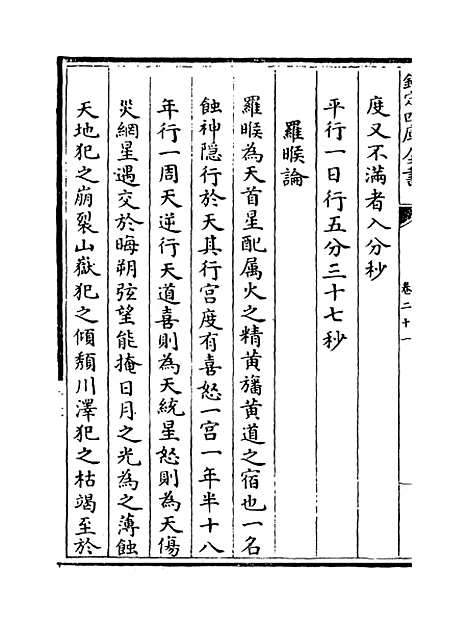 欽定四庫全書
卷二十一
度又不滿者入分秒
平行一日行五分三十七秒
羅㬋論
羅㬋為天首星配属火之精黄旛黄道之宿也一名
蝕神隠行於天其行宫度有喜怒一宫一年半十八
年行一周天逆行天道喜則為天統星怒則為天傷
災網星遇交於晦朔弦望能掩日月之光為之薄蝕
天地犯之崩裂山嶽犯之傾頽川澤犯之枯竭至於